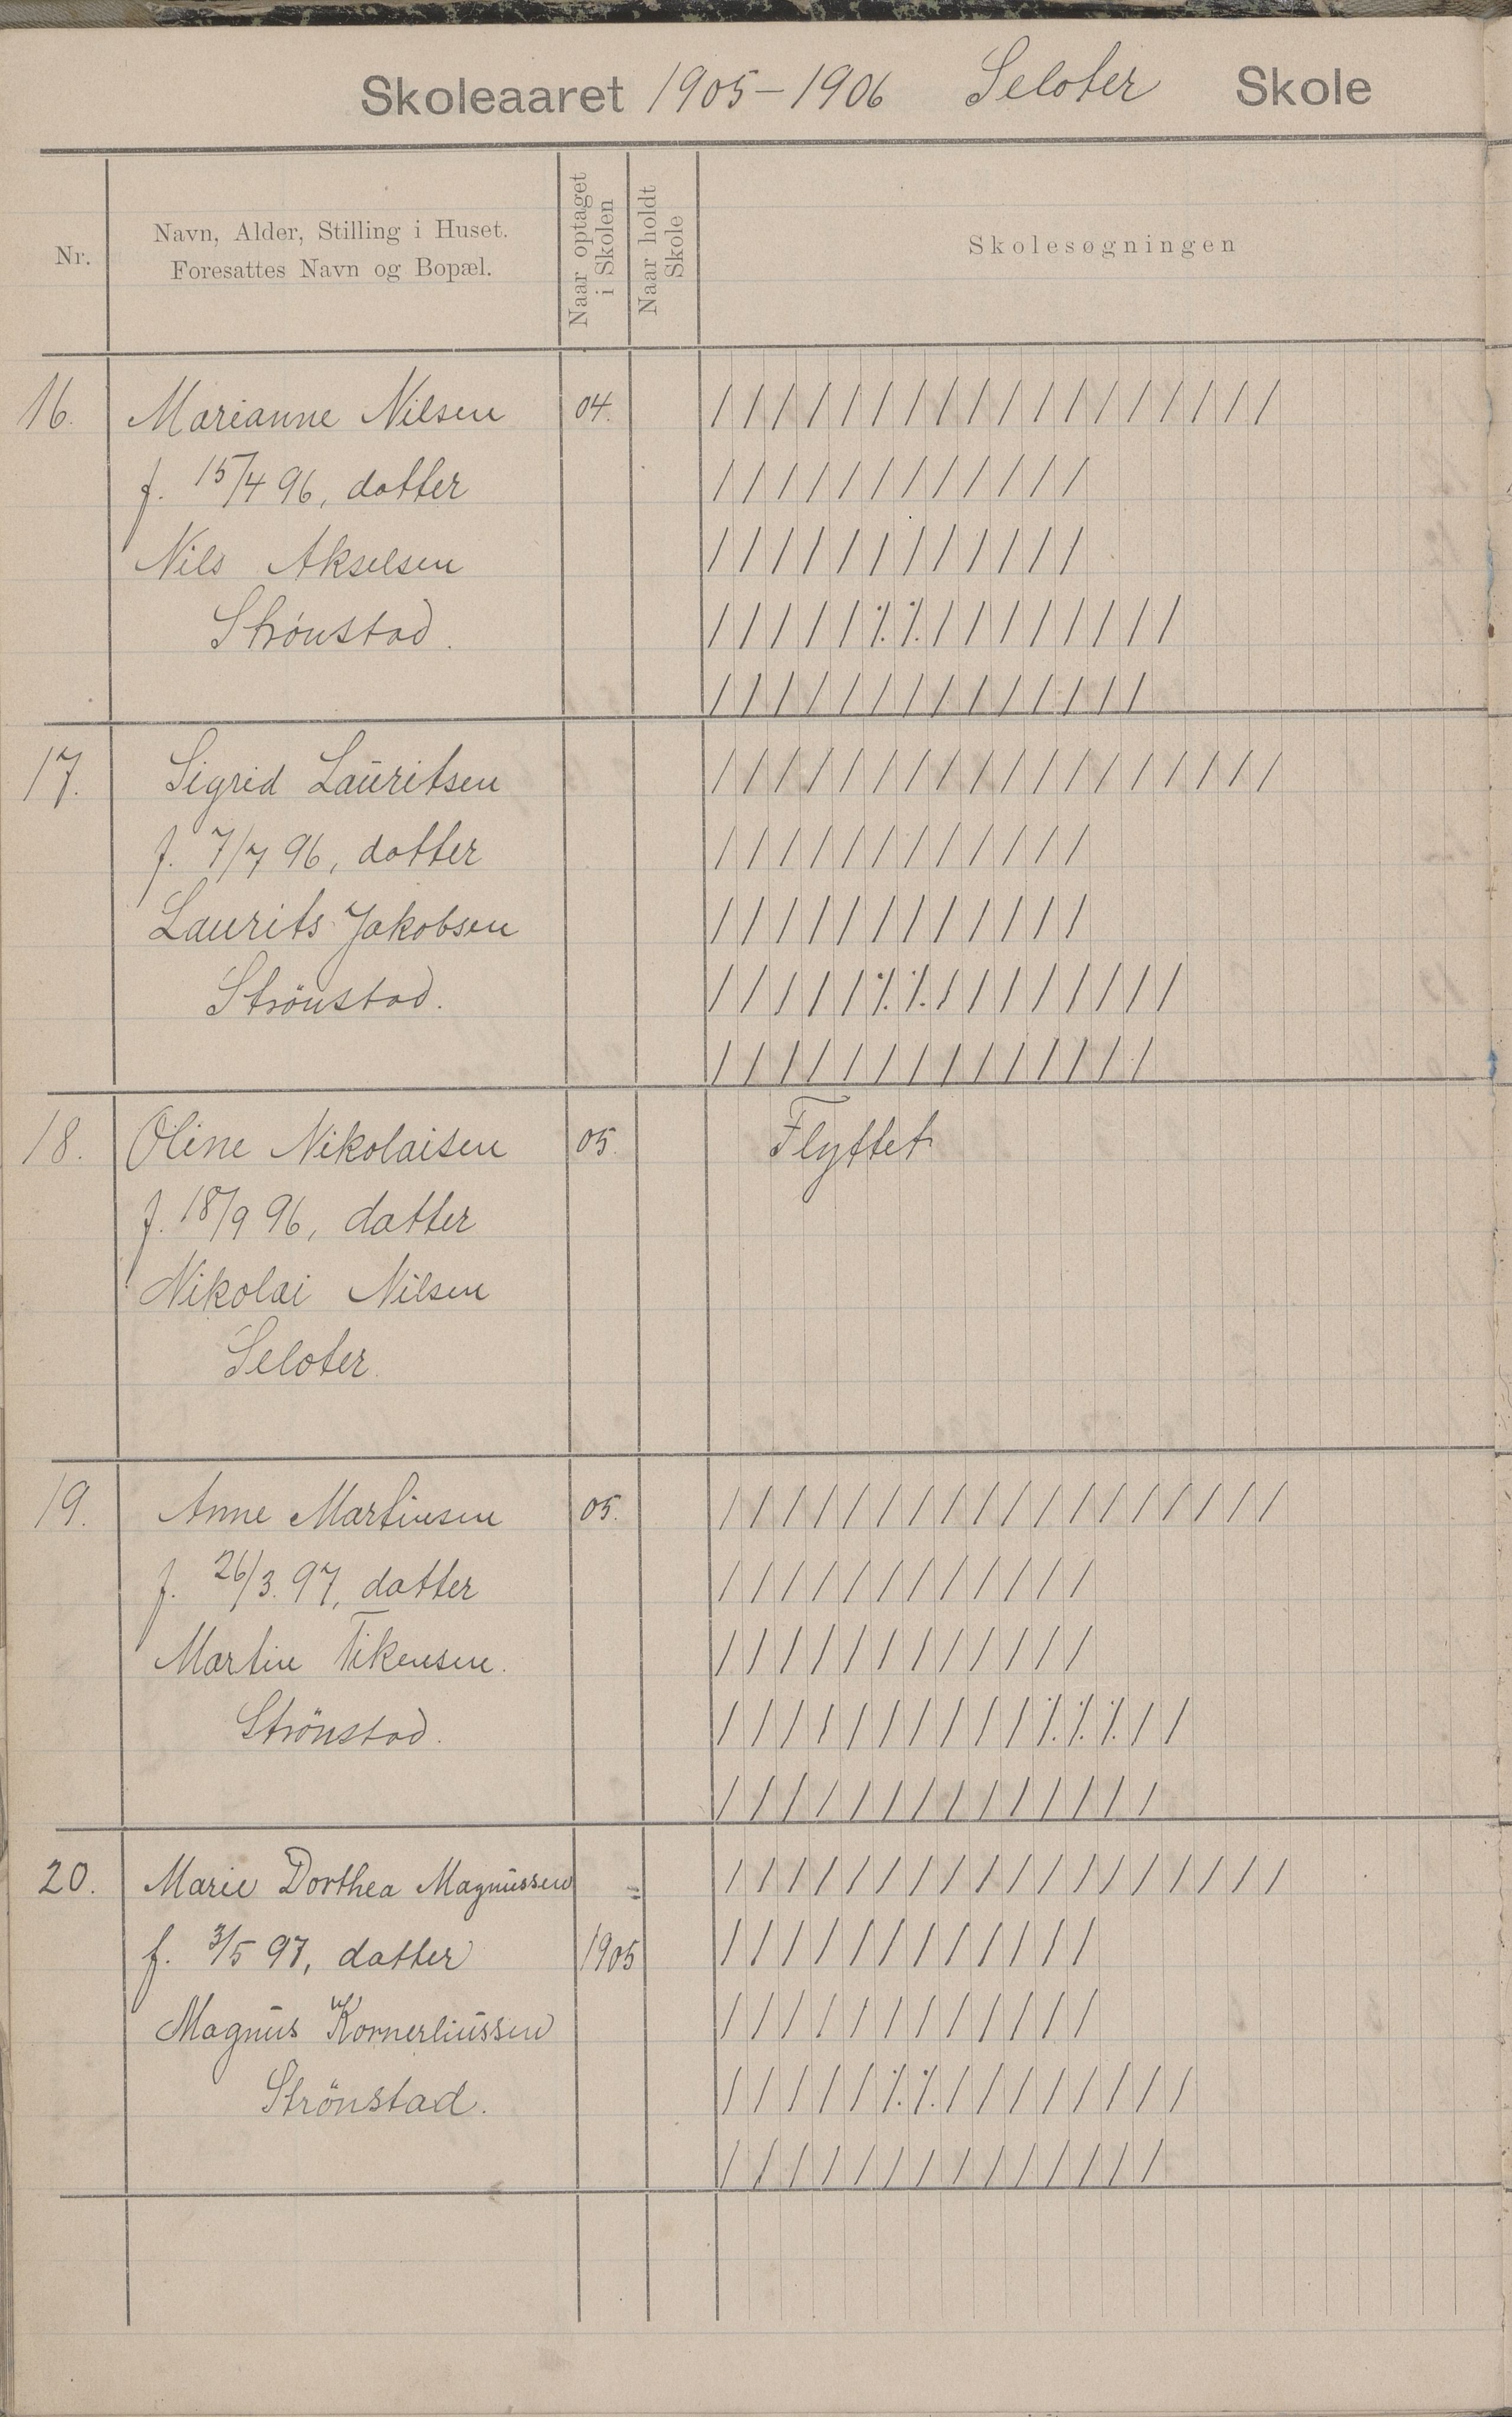 Skoleaaret 1905-1906 Seloter Skole
Nr.
Navn, Alder, Stilling i Huset.
Foresattes Navn og Bopæl.
Naar optaget
i Skolen
Naar holdt
Skole
Skolesøgningen
16. Marianne Nilsen 04. / / / / / / / / / / / / / / / / / /
f. 15/4 96, datter / / / / / / / / / / / /
Nils Akselsen / / / / / / / / / / / /
Strönstad. / / / / / ٪ ٪ / / / / / / / /
/ / / / / / / / / / / / / /
17. Sigrid Lauritsen / / / / / / / / / / / / / / / / / /
f. 7/7 96, datter / / / / / / / / / / / /
Laurits Jakobsen / / / / / / / / / / / /
Strönstad. / / / / / ٪ ٪ / / / / / / / /
/ / / / / / / / / / / / / /
18. Oline Nikolaisen 05. Flyttet
f. 18/9 96, datter
Nikolai Nilsen
Seloter.
19. Anne Martinsen 05. / / / / / / / / / / / / / / / / / /
f. 26/3. 97, datter / / / / / / / / / / / /
Martin Tikensen. / / / / / / / / / / / /
Strönstad. / / / / / / / / / / ٪ ٪ ٪ / /
/ / / / / / / / / / / / / /
20. Marie Dorthea Magnussen = / / / / / / / / / / / / / / / / / /
f. 3/5 97, datter 1905 / / / / / / / / / / / /
Magnus Kornerliussen / / / / / / / / / / / /
Strönstad. / / / / / ٪ ٪ / / / / / / / /
/ / / / / / / / / / / / / /